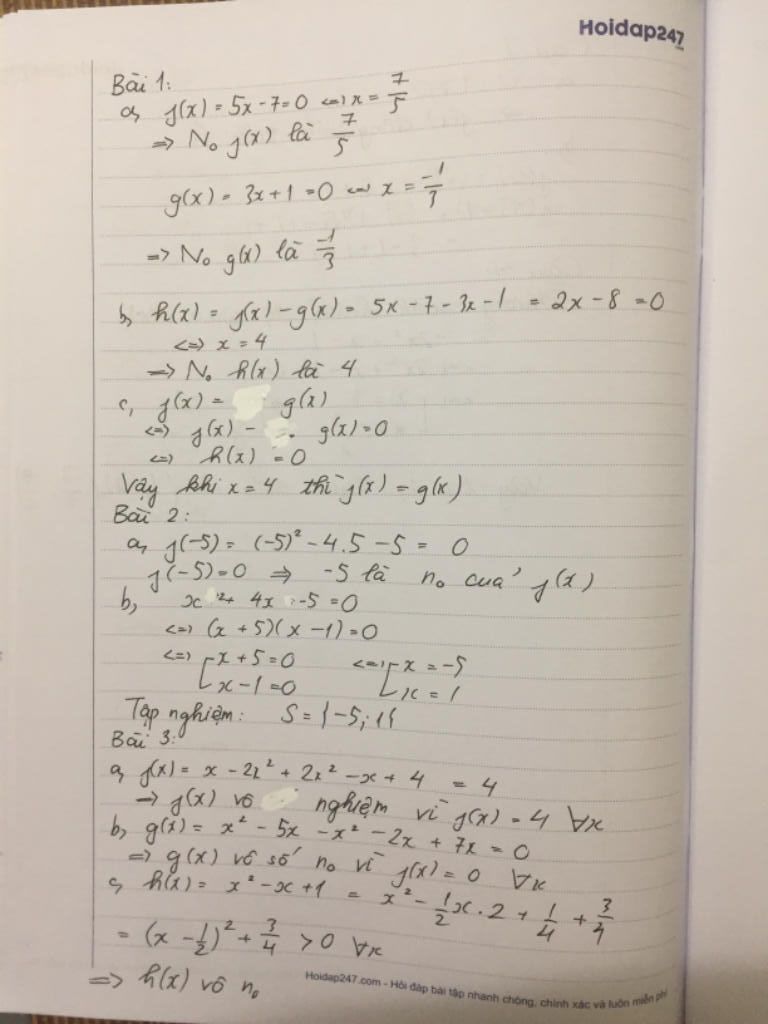 Hoidap247
.com
Bài 1:
a, f(x) = 5x - 7 = 0 <=> x = 7/5
=> No f(x) là 7/5
g(x) = 3x + 1 = 0 <=> x = -1/3
=> No g(x) là -1/3
b, h(x) = f(x) - g(x) = 5x - 7 - 3x - 1 = 2x - 8 = 0
<=> x = 4
=> No h(x) là 4
c, f(x) = g(x)
<=> f(x) - g(x) = 0
<=> h(x) = 0
Vậy khi x = 4 thì f(x) = g(x)
Bài 2:
a, f(-5) = (-5)² - 4.5 - 5 = 0
f(-5) = 0 => -5 là no của f(x)
b, x² + 4x - 5 = 0
<=> (x + 5)(x - 1) = 0
<=> [x + 5 = 0 <=> [x = -5
[x - 1 = 0 [x = 1
Tập nghiệm: S = {-5; 1}
Bài 3:
a, f(x) = x - 2x² + 2x² - x + 4 = 4
=> f(x) vô nghiệm vì f(x) = 4 ∀x
b, g(x) = x² - 5x - x² - 2x + 7x = 0
=> g(x) vô số no vì f(x) = 0 ∀x
c, h(x) = x² - x + 1 = x² - 1/2 x . 2 + 1/4 + 3/4
= (x - 1/2)² + 3/4 > 0 ∀x
=> h(x) vô no
Hoidap247.com - Hỏi đáp bài tập nhanh chóng, chính xác và luôn miễn phí